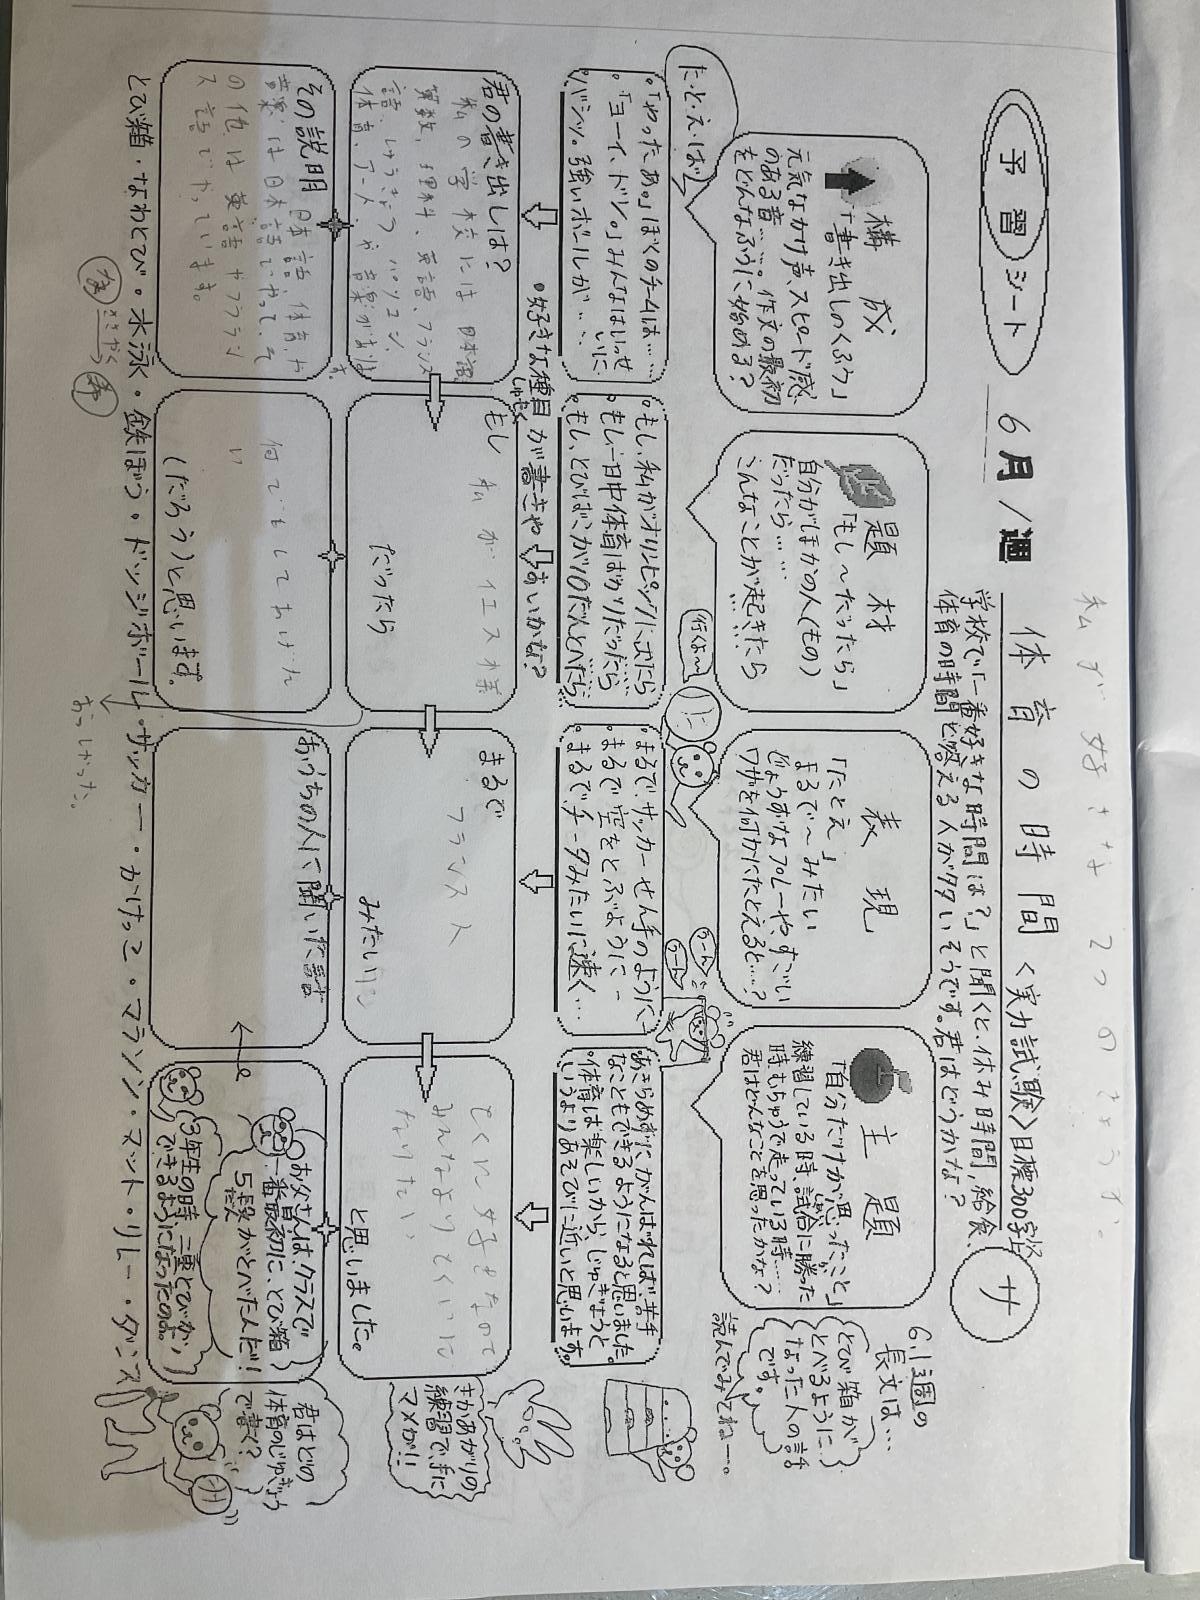 予習シート
6月1週
体育の時間 <実力試験>目標300字
サ
私が好きな2つの
学校で「一番好きな時間は?」と聞くと、休み時間、給食、
体育の時間と答える人が多いそうです。君はどうかな?
6.1週の
長文は…
とび箱が
とべるように
なった人の話
です。
読んでみてねー。
構成
「書き出しのくふう」
元気なかけ声、スピード感
のある音…。作文の最初
をどんなふうに始める?
題材
「もし〜だったら」
自分がほかの人(もの)
だったら……
こんなことが起きたら
……
表現
「たとえ」
まるで〜みたい
じょうずなプレーや、すごい
ワザを何かにたとえると…?
主題
「自分だけが思ったこと」
練習している時、試合に勝った
時もちゅうで走っている時……
君はどんなことを思ったかな?
たとえば
行くよ〜
うーん
うーん
・「やったあ。」ぼくのチームは……
・「ヨーイ、ドン。」みんなはいっせいに
・バシッ。強いボールが…
・もし、私がオリンピックに出たら
・もし、一日中体育ばかりだったら…
・もし、とびばこが10だんとべたら…
・まるで、サッカーせん手のように
・まるで空をとぶように
・まるでチータみたいに速く…
・あきらめずにがんばれば、苦手
なこともできるようになると思いました。
・体育は楽しいから、じゅぎょうと
いうよりあそびに近いと思います。
・好きな種目が書きやすいかな?
しゅもく
君の書き出しは?
私の学校には日本語、
算数、理科、英語、フランス
語、しゅうきょう、パソコン、
体育、アートや音楽があります。
もし
私が
だったら
まるで
フランス人
みたいに
とくに好きなので
みんなよりとくいに
なりたい
と思いました。
さかあがりの
練習で、手に
マメが!!
その説明
日本語、体育や
音楽は日本語でやって、そ
の他は英語やフラン
ス語でやっています。
何でもしてあげた
い
(だろう)と思います。
おうちの人に聞いた話
お父さんは、クラスで
一番最初に、とび箱
5段がとべた人だ!
だん
3年生の時、二重とびが
できるようになったのよ。
君はどの
体育のじゅぎょう
で書く?
とび箱・なわとび・水泳・鉄ぼう・ドッジボール・サッカー・かけっこ・マラソン・マット・リレー・ダンス
おっしゃった。